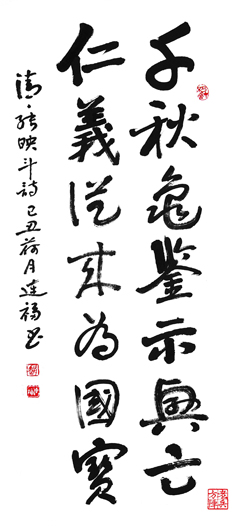 千秋龜鑒示興亡
仁義從來為國寶
清·張映斗詩己丑荷月連福書